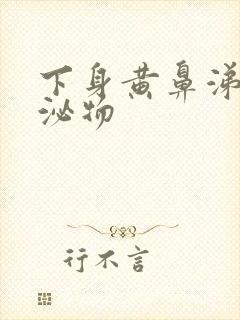 下身黄鼻涕
泌物
行不言